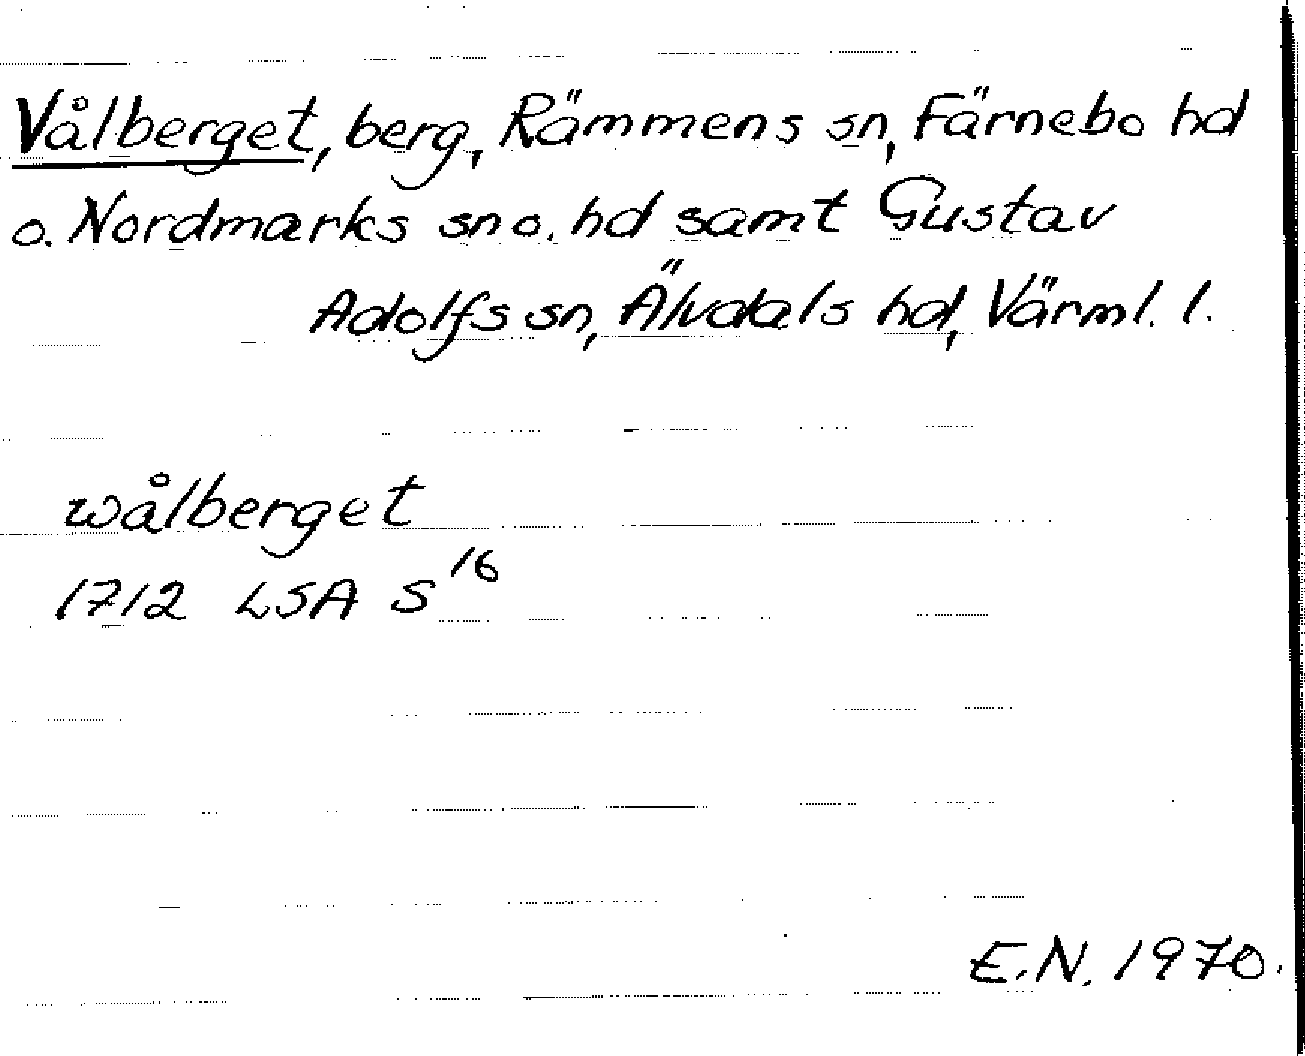 Vålberget, berg, Rämmens sn, Färnebo hd
o. Nordmarks sn o. hd samt Gustav
Adolfs sn, Älvdals hd, Värml. l.
wålberget
1712 LSA S16
E.N. 1970.